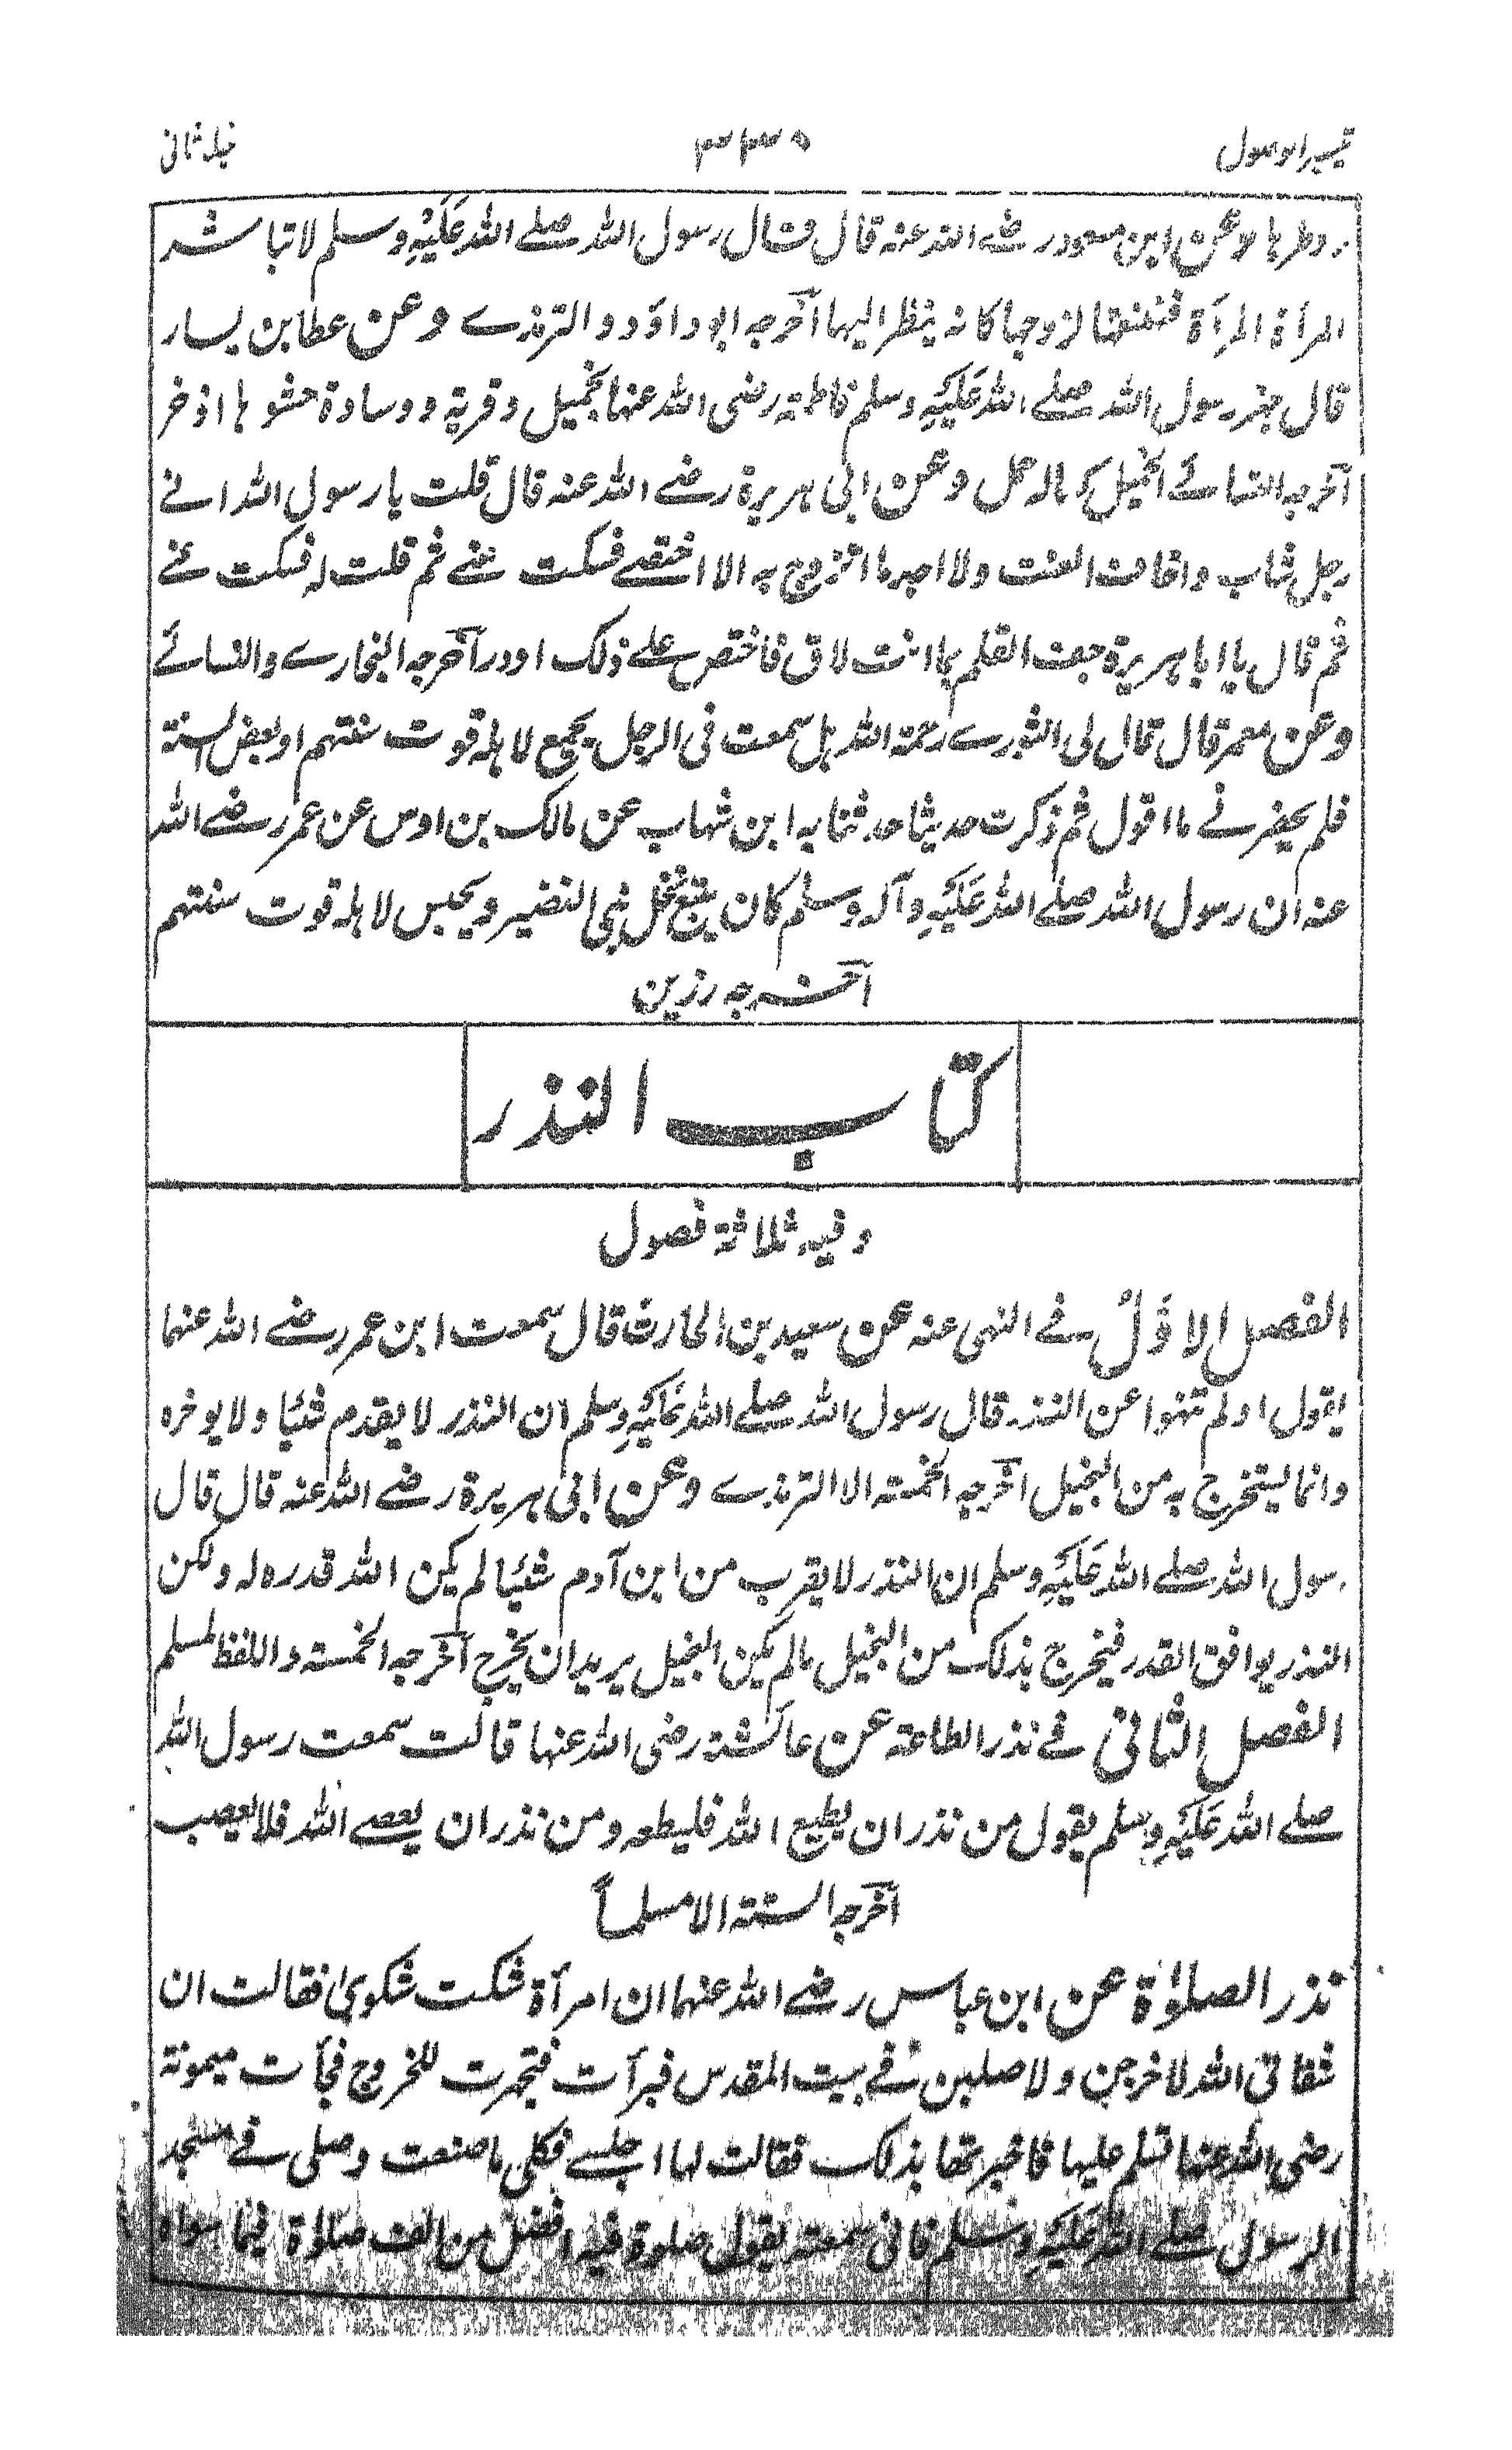 تيسير الوصول ٣٣٥ جلد ثانی
وطرہا وعن ابن مسعود رضے اللہ عنہ قال قال رسول اللہ صلے اللہ عَلَیْہِ وسلم لا تباشر
المرأۃ المرأۃ فتنعتہا لزوجہا کانہ ینظر الیہا اَخرجہ ابو داؤد والترمذے وعن عطا بن یسار
قال جہز رسول اللہ صلے اللہ عَلَیْہِ وسلم فاطمۃ رضی اللہ عنہا بخمیل وقربۃ ووسادۃ حشوہا اذخر
اَخرجہ النسائے الخمیل کل مالہ خمل وعن ابی ہریرۃ رضے اللہ عنہ قال قلت یا رسول اللہ انے
رجل شاب واخاف العنت ولا اجد ما اتزوج بہ الا اختصے فسکت عنے ثم قلت لہ فسکت عنے
ثم قال یا ابا ہریرۃ جف القلم بما انت لاق فاختص علے ذلک او ذر اَخرجہ البخارے والنسائے
وعن معمر قال قال لی الثورے رحمۃ اللہ ہل سمعت فی الرجل یجمع لاہلہ قوت سنتہم او بعض السنۃ
فلم یحضرنے ما اقول ثم ذکرت حدیثا حدثنا بہ ابن شہاب عن مالک بن اوس عن عمر رضے اللہ
عنہ ان رسول اللہ صلے اللہ عَلَیْہِ وآلہ وسلم کان یبتع نخل بنی النضیر ویحبس لاہلہ قوت سنتہم
اَخرجہ رزین
کتاب النذر
وفیہ ثلاثۃ فصول
الفصل الاوّلُ فے النہی عنہ عن سعید بن الحارث قال سمعت ابن عمر رضے اللہ عنہما
یقول اولم تنہوا عن النذر قال رسول اللہ صلے اللہ عَلَیْہِ وسلم ان النذر لا یقدم شیئا ولا یوخرہ
وانما یستخرج بہ من البخیل اَخرجہ الخمستہ الا الترمذے وعن ابی ہریرۃ رضے اللہ عنہ قال قال
رسول اللہ صلے اللہ عَلَیْہِ وسلم ان النذر لا یقرب من ابن آدم شیئا لم یکن اللہ قدرہ لہ ولکن
النذر یوافق القدر فیخرج بذلک من البخیل ما لم یکن البخیل یرید ان یخرج اَخرجہ الخمستہ واللفظ لمسلم
الفصل الثانی فے نذر الطاعۃ عن عائشۃ رضی اللہ عنہا قالت سمعت رسول اللہ
صلے اللہ عَلَیْہِ وسلم یقول من نذر ان یطیع اللہ فلیطعہ ومن نذر ان یعصے اللہ فلا یعصہ
اَخرجہ الستۃ الا مسلماً
نذر الصلوٰۃ عن ابن عباس رضے اللہ عنہما ان امرأۃ شکت شکوی فقالت ان
شفانی اللہ لاخرجن ولاصلین فے بیت المقدس فبرأت فتجہزت للخروج فجأت میمونۃ
رضی اللہ عنہا تسلم علیہا فاخبرتہا بذلک فقالت لہا اجلسے فکلی ما صنعت وصلی فے مسجد
الرسول صلے اللہ عَلَیْہِ وسلم فانی سمعتہ یقول صلوۃ فیہ افضل من الف صلوٰۃ فیما سواہ